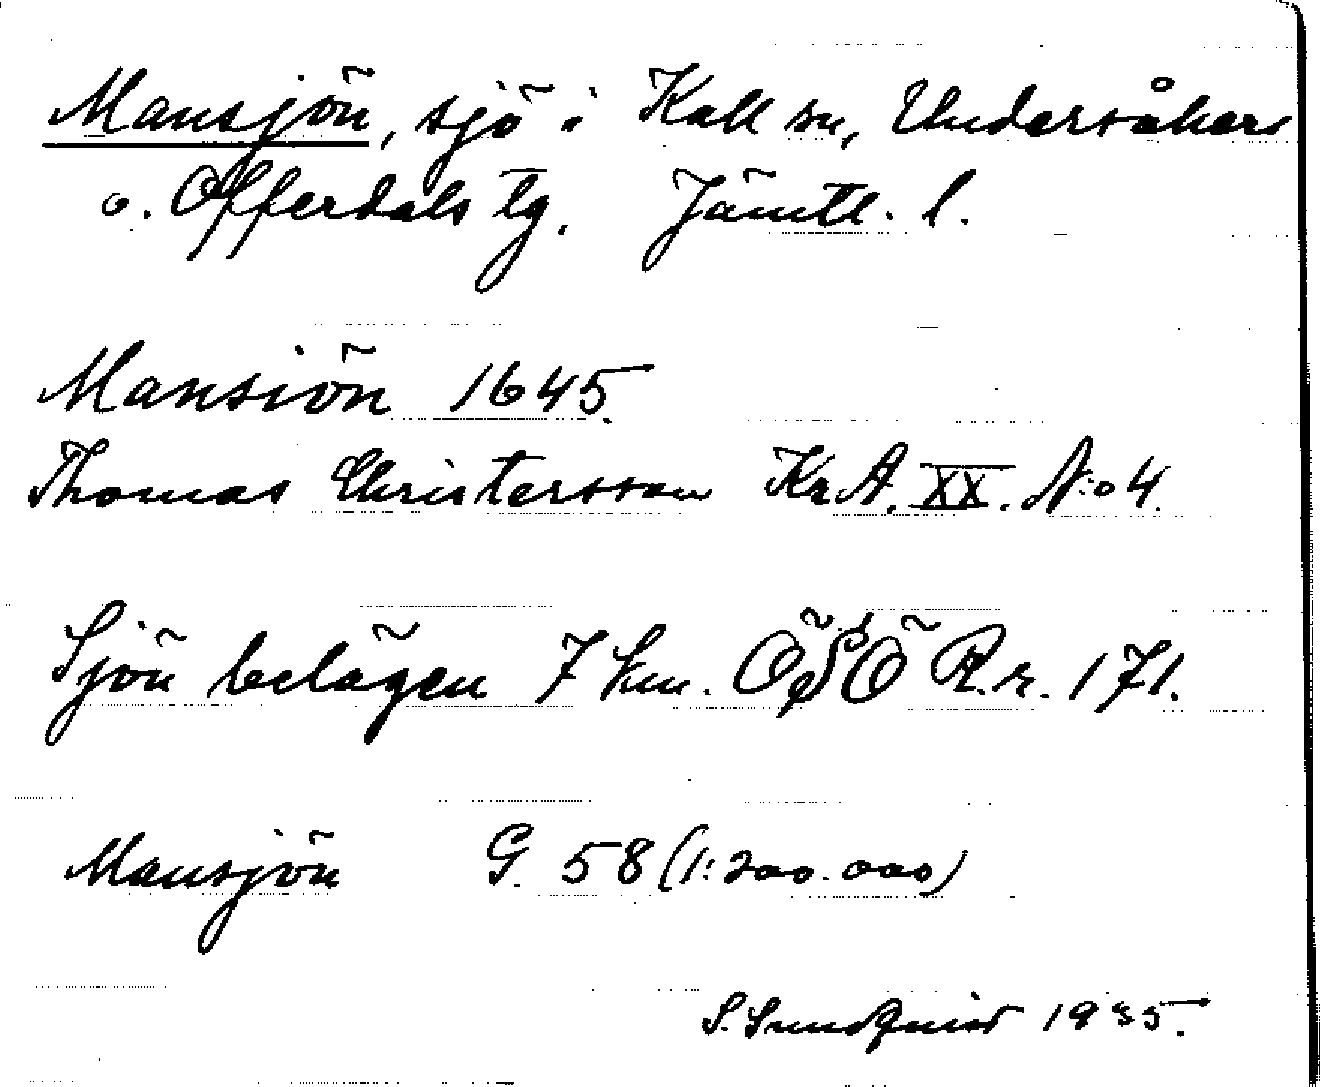 Mansjön, sjö i Kall sn, Undersåkers
o. Offerdals tg. Jämtl. l.
Mansiön 1645.
Thomas Christersson Kr A. XX. N:o 4.
Sjön belägen 7 km. ÖSÖ R.r. 171.
Mansjön G. 58 (1:200.000)
S. Sundquist 1935.